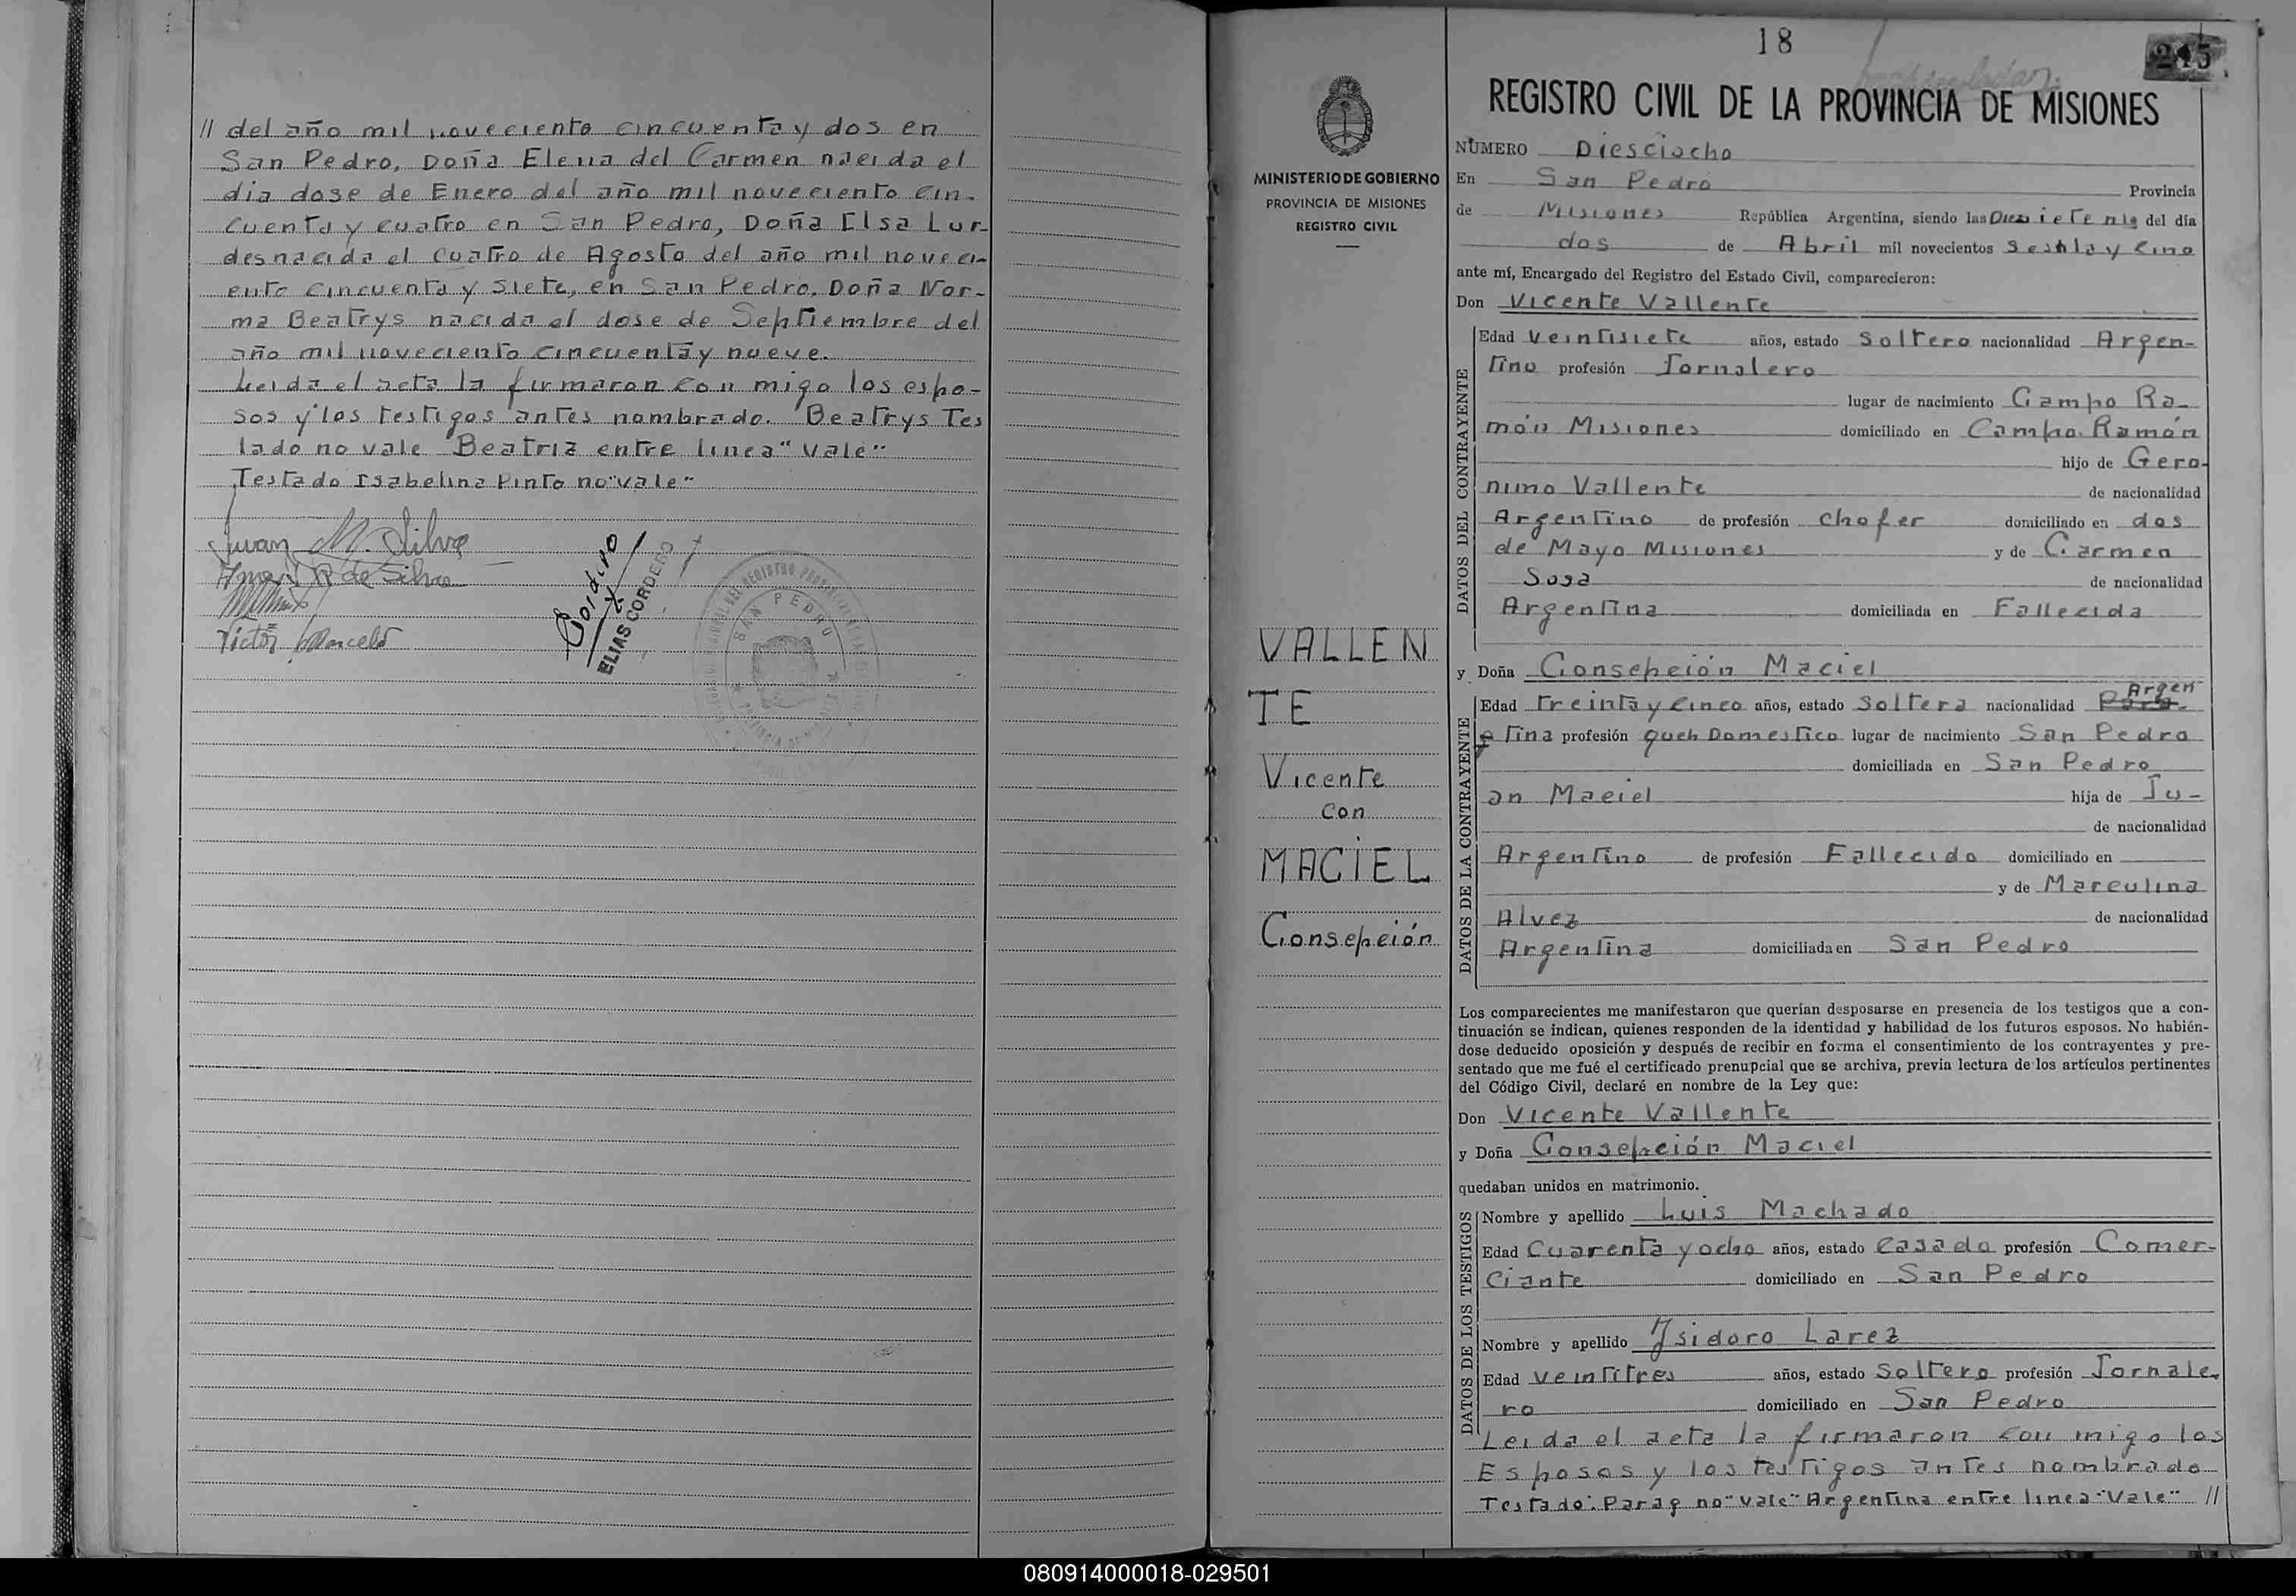 // del año mil noveciento cincuenta y dos en
San Pedro, Doña Elena del Carmen nacida el
dia dose de Enero del año mil noveciento cin-
cuenta y cuatro en San Pedro, Doña Elsa Lur-
des nacida el cuatro de Agosto del año mil noveci-
ento cincuenta y siete, en San Pedro, Doña Nor-
ma Beatrys nacida el dose de Septiembre del
año mil noveciento cincuenta y nueve.
Leida el acta la firmaron con migo los espo-
sos y los testigos antes nombrado. Beatrys Tes
tado no vale Beatriz entre linea "vale"
Testado Isabelina Pinto no "vale"
Juan M. Silva
de Silva
Victor Marcelo
Cordero
ELIAS CORDERO
SAN PEDRO
18
245
REGISTRO CIVIL DE LA PROVINCIA DE MISIONES
MINISTERIO DE GOBIERNO
PROVINCIA DE MISIONES
REGISTRO CIVIL
VALLEN
TE
Vicente
con
MACIEL
Consepción
NÚMERO Diesciocho
En San Pedro Provincia
de Misiones República Argentina, siendo las del día
dos de Abril mil novecientos
ante mí, Encargado del Registro del Estado Civil, comparecieron:
Don Vicente Vallente
DATOS DEL CONTRAYENTE
Edad veintisiete años, estado Soltero nacionalidad Argen-
tino profesión Jornalero
lugar de nacimiento Campo Ra-
món Misiones domiciliado en Campo Ramón
hijo de Gero-
nimo Vallente de nacionalidad
Argentino de profesión chofer domiciliado en dos
de Mayo Misiones y de Carmen
Sosa de nacionalidad
Argentina domiciliada en Fallecida
y Doña Consepción Maciel
DATOS DE LA CONTRAYENTE
Argen
Edad treinta y cinco años, estado Soltera nacionalidad Parag-
tina profesión queh Domestico lugar de nacimiento San Pedro
domiciliada en San Pedro
an Maciel hija de Ju-
de nacionalidad
Argentino de profesión Fallecido domiciliado en
y de Marculina
Alvez de nacionalidad
Argentina domiciliada en San Pedro
Los comparecientes me manifestaron que querían desposarse en presencia de los testigos que a con-
tinuación se indican, quienes responden de la identidad y habilidad de los futuros esposos. No habién-
dose deducido oposición y después de recibir en forma el consentimiento de los contrayentes y pre-
sentado que me fué el certificado prenupcial que se archiva, previa lectura de los artículos pertinentes
del Código Civil, declaré en nombre de la Ley que:
Don Vicente Vallente
y Doña Consepción Maciel
quedaban unidos en matrimonio.
DATOS DE LOS TESTIGOS
Nombre y apellido Luis Machado
Edad Cuarenta y ocho años, estado casado profesión Comer-
ciante domiciliado en San Pedro
Nombre y apellido Isidoro Larez
Edad veintitres años, estado soltero profesión Jornale-
ro domiciliado en San Pedro
Leida el acta la firmaron con migo los
Esposos y los testigos antes nombrado
Testado: Parag no "vale" Argentina entre linea "Vale" //
080914000018-029501